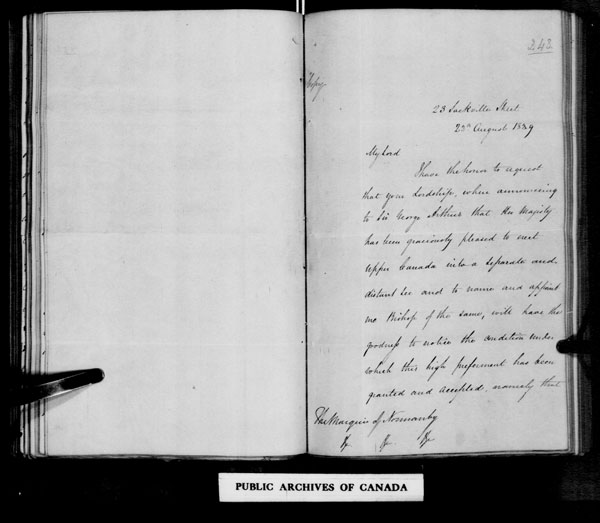 243
Copy
23 Sackville Street
22nd August 1839
My Lord
I have the honor to request
that your Lordship, when announcing
to Sir George Arthur that Her Majesty
has been graciously pleased to erect
Upper Canada into a separate and
distant See and to name and appoint
me Bishop of the same, will have the
goodness to notice the condition under
which this high preferment has been
granted and accepted, namely that
The Marquis of Normanby
&c &c &c
PUBLIC ARCHIVES OF CANADA